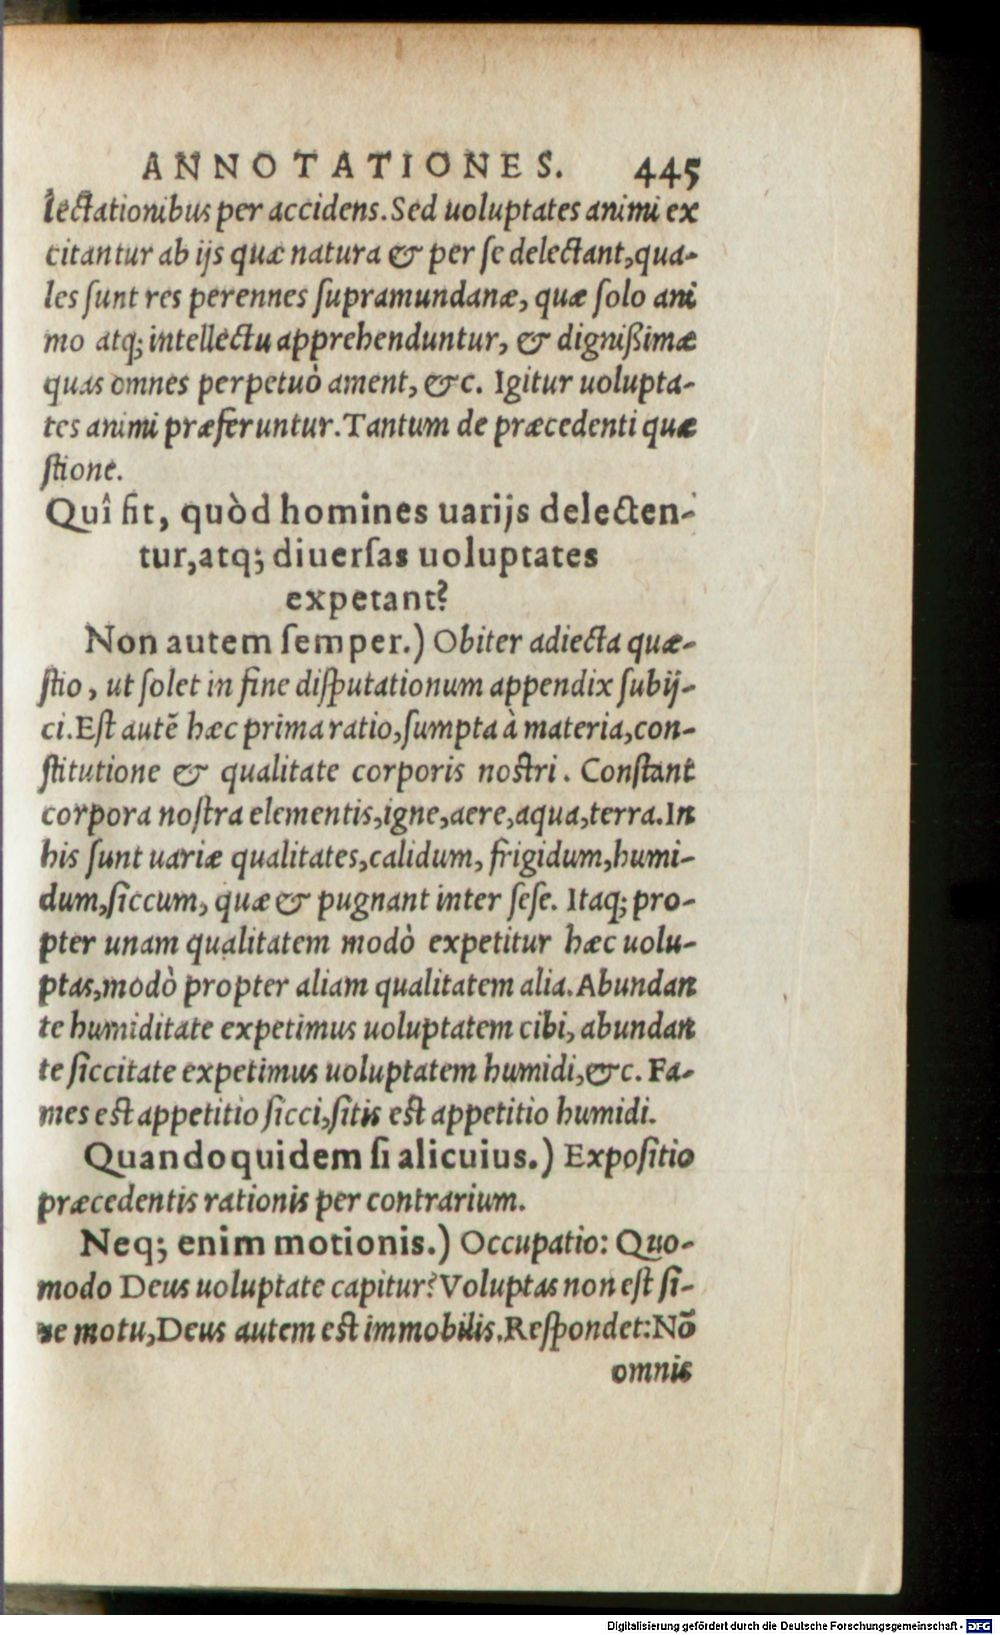 ANNOTATIONES. 445
lectationibus per accidens. Sed uoluptates animi ex
citantur ab ijs quæ natura & per se delectant, qua-
les sunt res perennes supramundanæ, quæ solo ani
mo atq; intellectu apprehenduntur, & dignißimæ
quas omnes perpetuò ament, &c. Igitur uolupta-
tes animi præferuntur. Tantum de præcedenti quæ
stione.
Quî fit, quòd homines uarijs delecten-
tur, atq; diuersas uoluptates
expetant?
Non autem semper.) Obiter adiecta quæ-
stio, ut solet in fine disputationum appendix subij-
ci. Est autẽ hæc prima ratio, sumpta à materia, con-
stitutione & qualitate corporis nostri. Constant
corpora nostra elementis, igne, aere, aqua, terra. In
his sunt uariæ qualitates, calidum, frigidum, humi-
dum, siccum, quæ & pugnant inter sese. Itaq; pro-
pter unam qualitatem modò expetitur hæc uolu-
ptas, modò propter aliam qualitatem alia. Abundan
te humiditate expetimus uoluptatem cibi, abundan
te siccitate expetimus uoluptatem humidi, &c. Fa-
mes est appetitio sicci, sitis est appetitio humidi.
Quandoquidem si alicuius.) Expositio
præcedentis rationis per contrarium.
Neq; enim motionis.) Occupatio: Quo-
modo Deus uoluptate capitur? Voluptas non est si-
ne motu, Deus autem est immobilis. Respondet: Nõ
omnis
Digitalisierung gefördert durch die Deutsche Forschungsgemeinschaft - DFG